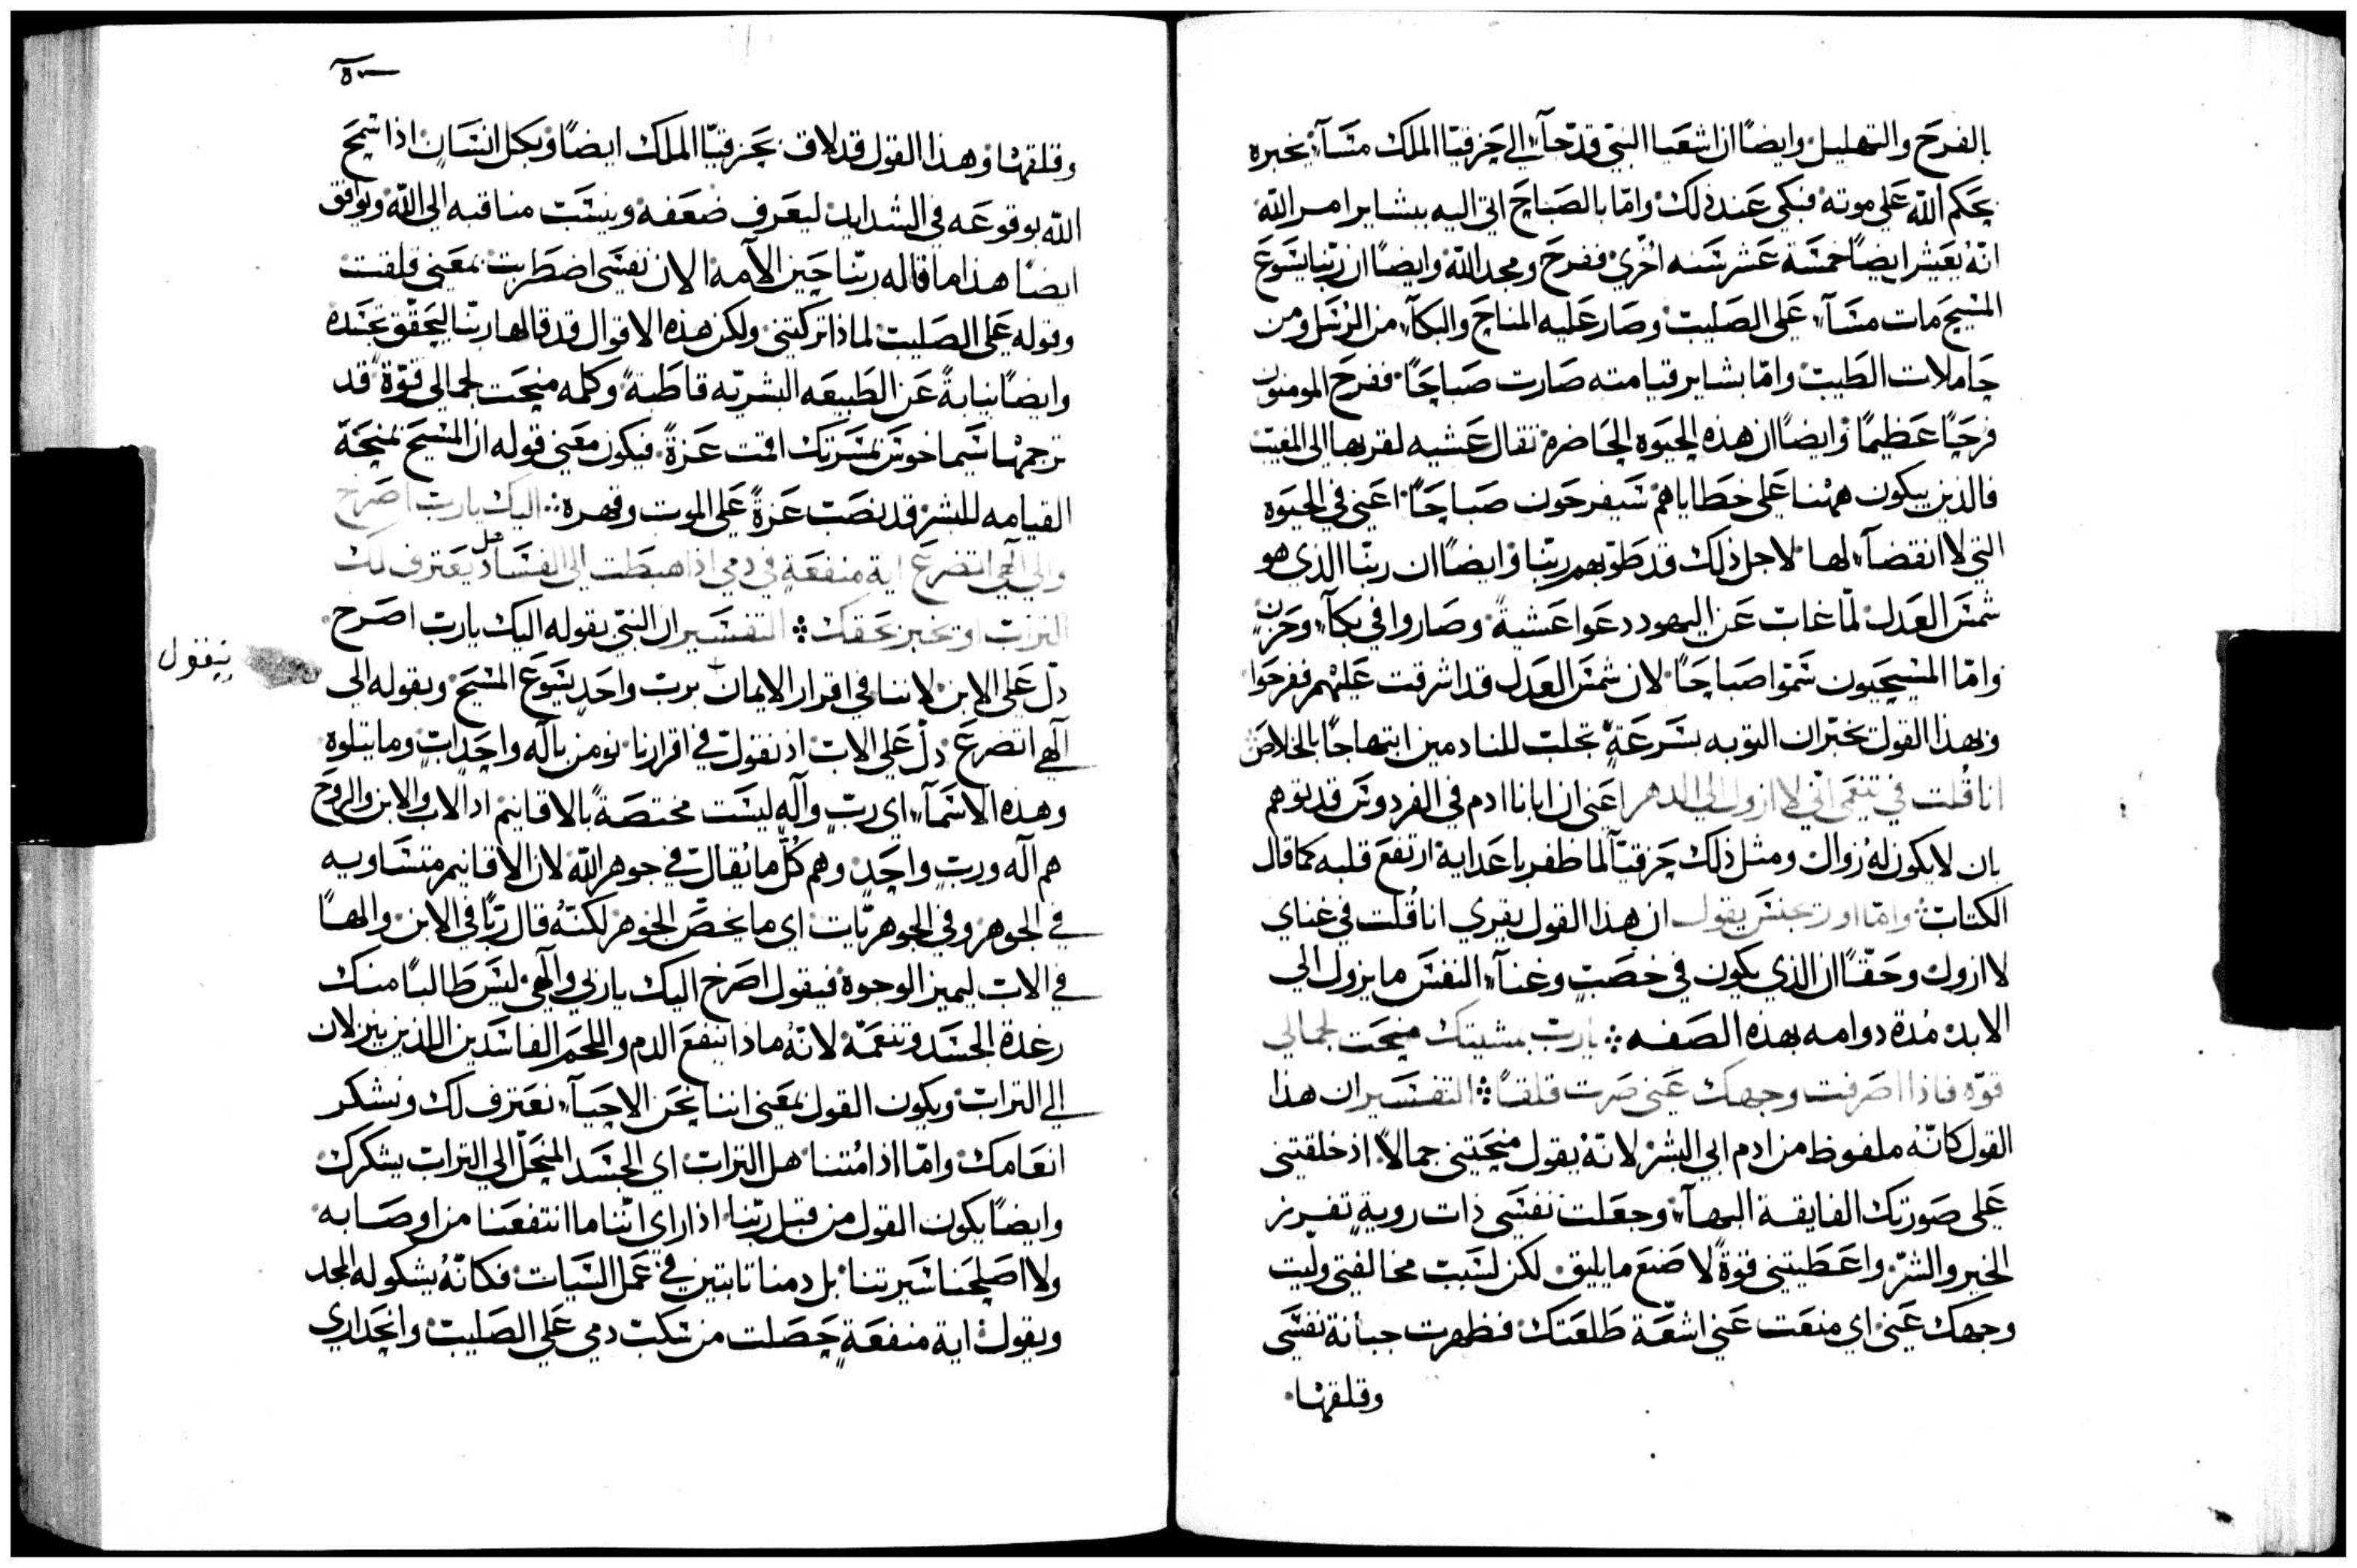 بالفرح والتهليل وايضًا ان اشعيا النبي قد جآء الي حزقيّا الملك مسآء يخبره
بحكم الله علي موته فبكي عند ذلك وامّا بالصباح اتي اليه ببشاير امر الله
انّهُ يعيش ايضًا خمسة عشر سنه اخري ففرح ومجد الله وايضًا ان ربّنا يسوع
المسيح مات مسآء علي الصليب وصار عليه المناح والبكآء من الرسل ومن
حاملات الطيب وامّا بشاير قيامته صارت صباحًا ففرح المومنون
فرحًا عظيمًا وايضًا ان هذه الحيوه الحاضره تقال عشيه لقربها الي المغيب
فالذين يبكون ههنا علي خطاياهم سيفرحون صباحًا اعني في الحيوه
التي لا انقضآء لها لاجل ذلك قد طوّبهم ربّنا وايضًا ان ربّنا الذي هو
شمس العدل لمّا غاب عن اليهود دعوا عشيةً وصاروا في بكآء وحزنٍ
وامّا المسيحيون سموا صباحًا لان شمس العدل قد اشرقت عليهم ففرحوا
وبهذا القول يخبر ان التوبه بسرعةٍ تجلب للنادمين ابتهاجًا بالخلاص
انا قُلت في تنعمي انّي لا ازول الي الدهر اعني ان ابانا ادم في الفردوس قد توهم
بان لا يكون لهُ زوال ومثل ذلك حزقيّآ لما ظفر باعدايه ارتفع قلبه كما قال
الكتاب وامّا اوريجنس يقول ان هذا القول يقري انا قُلت في غناي
لا ازول وحقًّا ان الذي يكون في خصبٍ وغنآء النفس ما يزول الي
الابد مُدة دوامه بهذه الصفه ⁘ يارب بمشيتك منحت لجمالي
قوّه فاذا اصرفت وجهك عني صرت قلقًا ⁘ التفسير ان هذا
القول كانّهُ ملفوظ من ادم ابي البشر لانّهُ يقول منحتني جمالاً اذ خلقتني
علي صورتك الفايقة البهآء وجعلت نفسي ذات رويةٍ تفريز
الخير والشرّ واعطيتني قوةً لاصنع ما يليق لكن لسبب مخالفتي ولّيت
وجهك عني اي منعت عني اشعّة طلعتك فظهرت جبانة نفسي
وقلقها
وقلقها وهذا القول قد لاق بحزقيّا الملك ايضًا وبكل انسان اذا سمح
الله بوقوعه في الشدايد ليعرف ضعفه وينسب مناقبه الي الله ويوافق
ايضًا هذا ما قاله ربّنا حين الآمه الان نفسي اضطربت بمعني قلقت
وقوله علي الصليب لماذا تركتني ولكن هذه الاقوال قد قالها ربّنا ليحقّق تجسّده
وايضًا نيابةً عن الطبيعه البشريّه قاطبةً وكلمه منحت لجمالي قوّة قد
ترجمها سيماخوس بمسرتك اقمت عزةً فيكون معني قوله ان المسيح بمنحة
القيامه للبشر قد نصب عزةً علي الموت وقهره ⁘ اليك يارب اصرخ
والي الهي اتضرع اية منفعةٍ في دمي اذا هبطت الي الفساد هل يعترف لك
التراب او يخبر بحقك ⁘ التفسير ان النبّي بقوله اليك يارب اصرخ
دلّ علي الابن لاننا في اقرار الايمان بربّ واحدٍ يسوع المسيح وبقوله الي
الٓهي اتضرع دلّ علي الاب اذ نقول في اقرارنا نومن بالٓه واحد اب وما يتلوه
وهذه الاسمآء اي ربّ وآله ليست مختصةً بالاقانيم اذ الاب والابن والروح
هم آله وربٍ واحدٍ وهم كُلّ ما يُقال في جوهر الله لان الاقانيم متساويه
في الجوهر وفي الجوهريّات اي ما يخصّ الجوهر لكنّهُ قال ربًّا في الابن والهًا
في الاب ليميز الوجوه فيقول اصرخ اليك ياربي والٓهي ليس طالبًا منك
رغدة الجسد وتنعمّه لانّهُ ماذا ينفع الدم واللحم الفاسدين اللذين ينزلان
الي التراب ويكون القول بمعني اننا نحن الاحيآء نعترف لك ونشكر
انعامك وامّا اذا مُتنا هل التراب اي الجسد المنحلّ الي التراب يشكرك
وايضًا يكون القول من قبل ربّنا اذا راي انّنا ما انتفعنا من اوصابه
ولا اصلحنا سيرتنا بل دمنا تابتين في عمل السّيات فكانّهُ يشكو له المجد
ويقول اية منفعةٍ حصلت من سكب دمي علي الصليب وانحداري